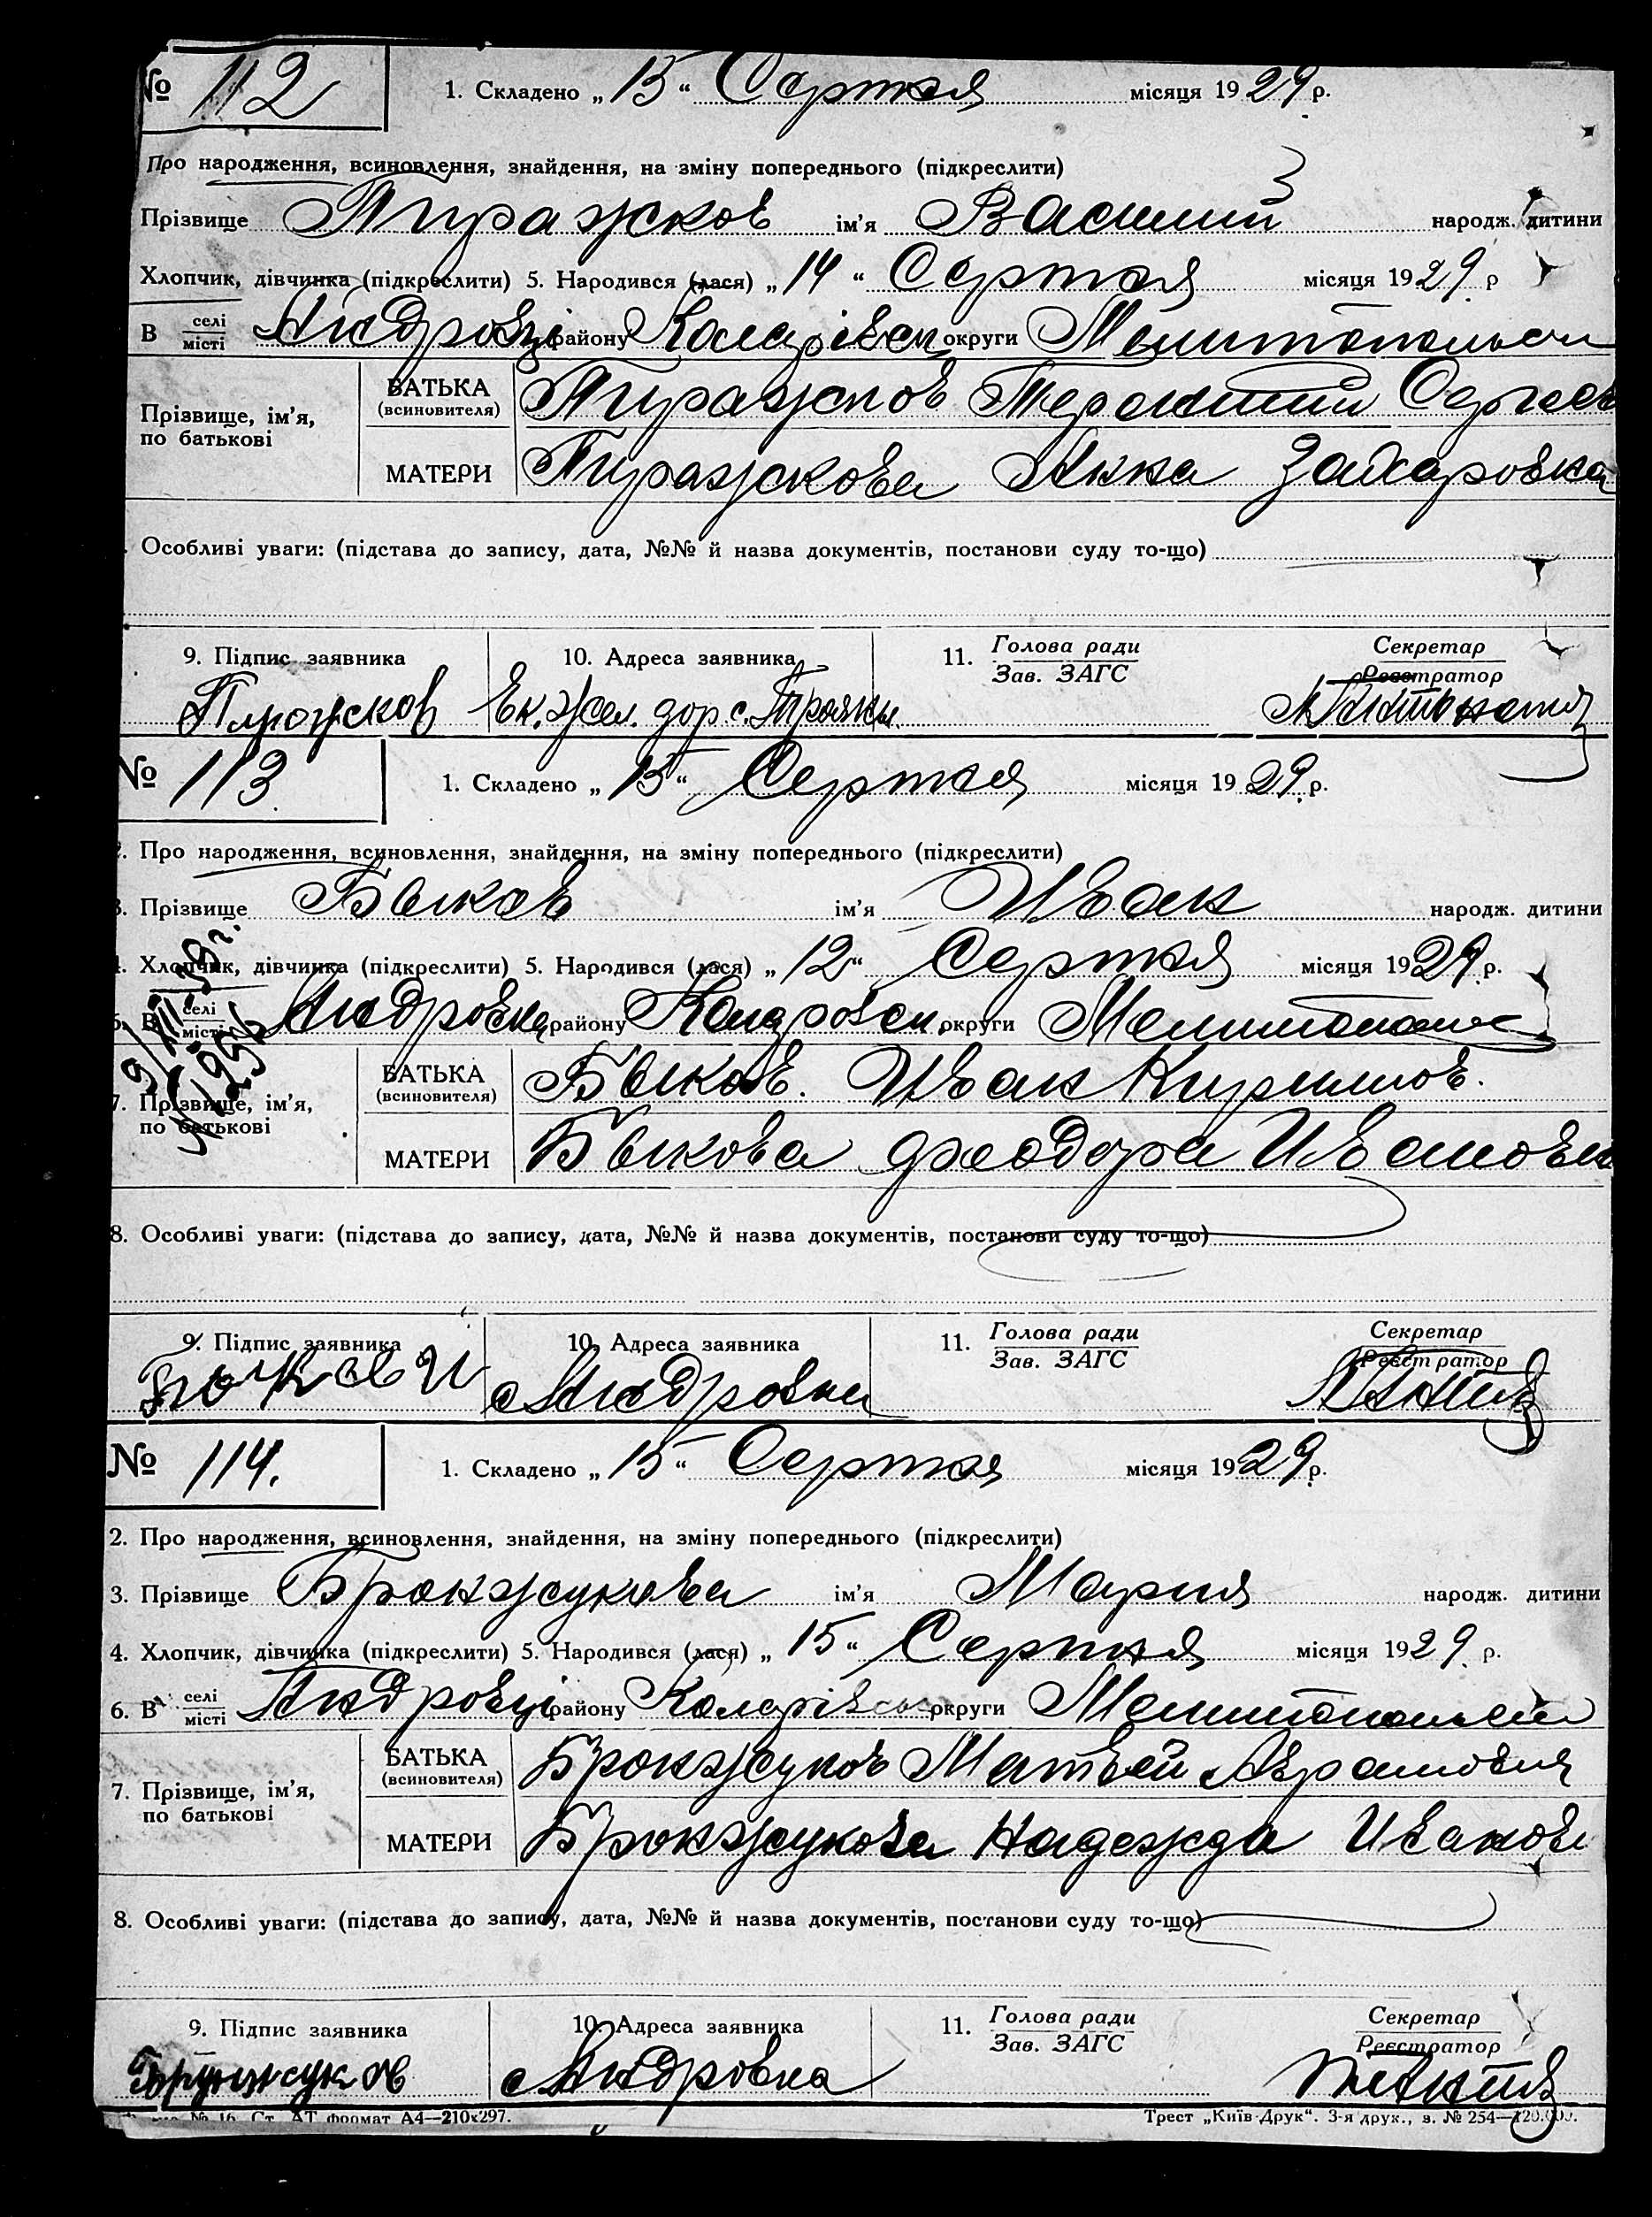 № 112
1. Складено „ 15 “ Серпня місяця 19 29 р.
Про народження, всиновлення, знайдення, на зміну попереднього (підкреслити)
Прізвище Пиражков ім'я Василий народж. дитини
Хлопчик, дівчинка (підкреслити) 5. Народився (лася) „ 14 “ Серпня місяця 19 29. р
В селі місті Андровці району Коларівськ округи Мелитопольськ
Прізвище, ім'я, по батькові
БАТЬКА (всиновителя) Пиражков Терентий Сергеев
МАТЕРИ Пиражкова Анна Захаровна
Особливі уваги: (підстава до запису, дата, №№ й назва документів, постанови суду то-що)
9. Підпис заявника
10. Адреса заявника
11. Голова ради
Зав. ЗАГС
Секретар
Реєстратор
Ек. жел. дор с. Трояны.
№ 113
1. Складено „ 15 “ Серпня місяця 19 29. р.
2. Про народження, всиновлення, знайдення, на зміну попереднього (підкреслити)
3. Прізвище Быков ім'я Иван народж. дитини
4. Хлопчик, дівчинка (підкреслити) 5. Народився (лася) „ 12 “ Серпня місяця 19 29 р.
6. В селі місті Андровка району Коларовськ округи
7. Прізвище, ім'я, по батькові
БАТЬКА (всиновителя) Быков. Иван Кирилов.
МАТЕРИ Быкова Феодора Ивановна
8. Особливі уваги: (підстава до запису, дата, №№ й назва документів, постанови суду то-що)
9. Підпис заявника
10. Адреса заявника
11. Голова ради
Зав. ЗАГС
Секретар
Реєстратор
с Андровка
№ 114.
1. Складено „ 15 “ Серпня місяця 19 29 р.
2. Про народження, всиновлення, знайдення, на зміну попереднього (підкреслити)
3. Прізвище Бронжукова ім'я Мария народж. дитини
4. Хлопчик, дівчинка (підкреслити) 5. Народився (лася) „ 15 “ Серпня місяця 19 29. р.
6. В селі місті Андровці району Коларівськ округи Мелитопольськ
7. Прізвище, ім'я, по батькові
БАТЬКА (всиновителя) Бронжуков Матвей Аврамович
МАТЕРИ Бронжукова Надежда Иванов
8. Особливі уваги: (підстава до запису, дата, №№ й назва документів, постанови суду то-що)
9. Підпис заявника
10. Адреса заявника
11. Голова ради
Зав. ЗАГС
Секретар
Реєстратор
с Андровка
№ 16. Ст. АТ формат А4—210х297.
Трест „Київ-Друк“. 3-я друк., з. № 254—120.000.